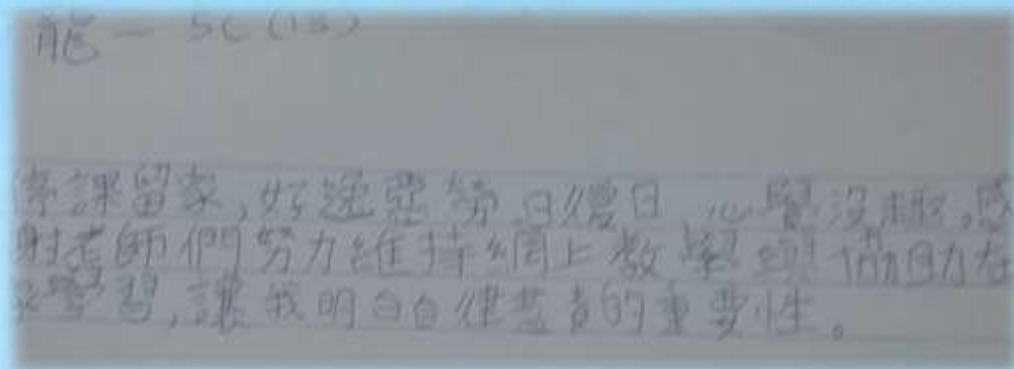 龍一 5C (13)
停課留家,好逸惡勞,日復日,心覺沒趣。感
謝老師們努力維持網上教學與協助在
家學習,讓我明白自律盡責的重要性。